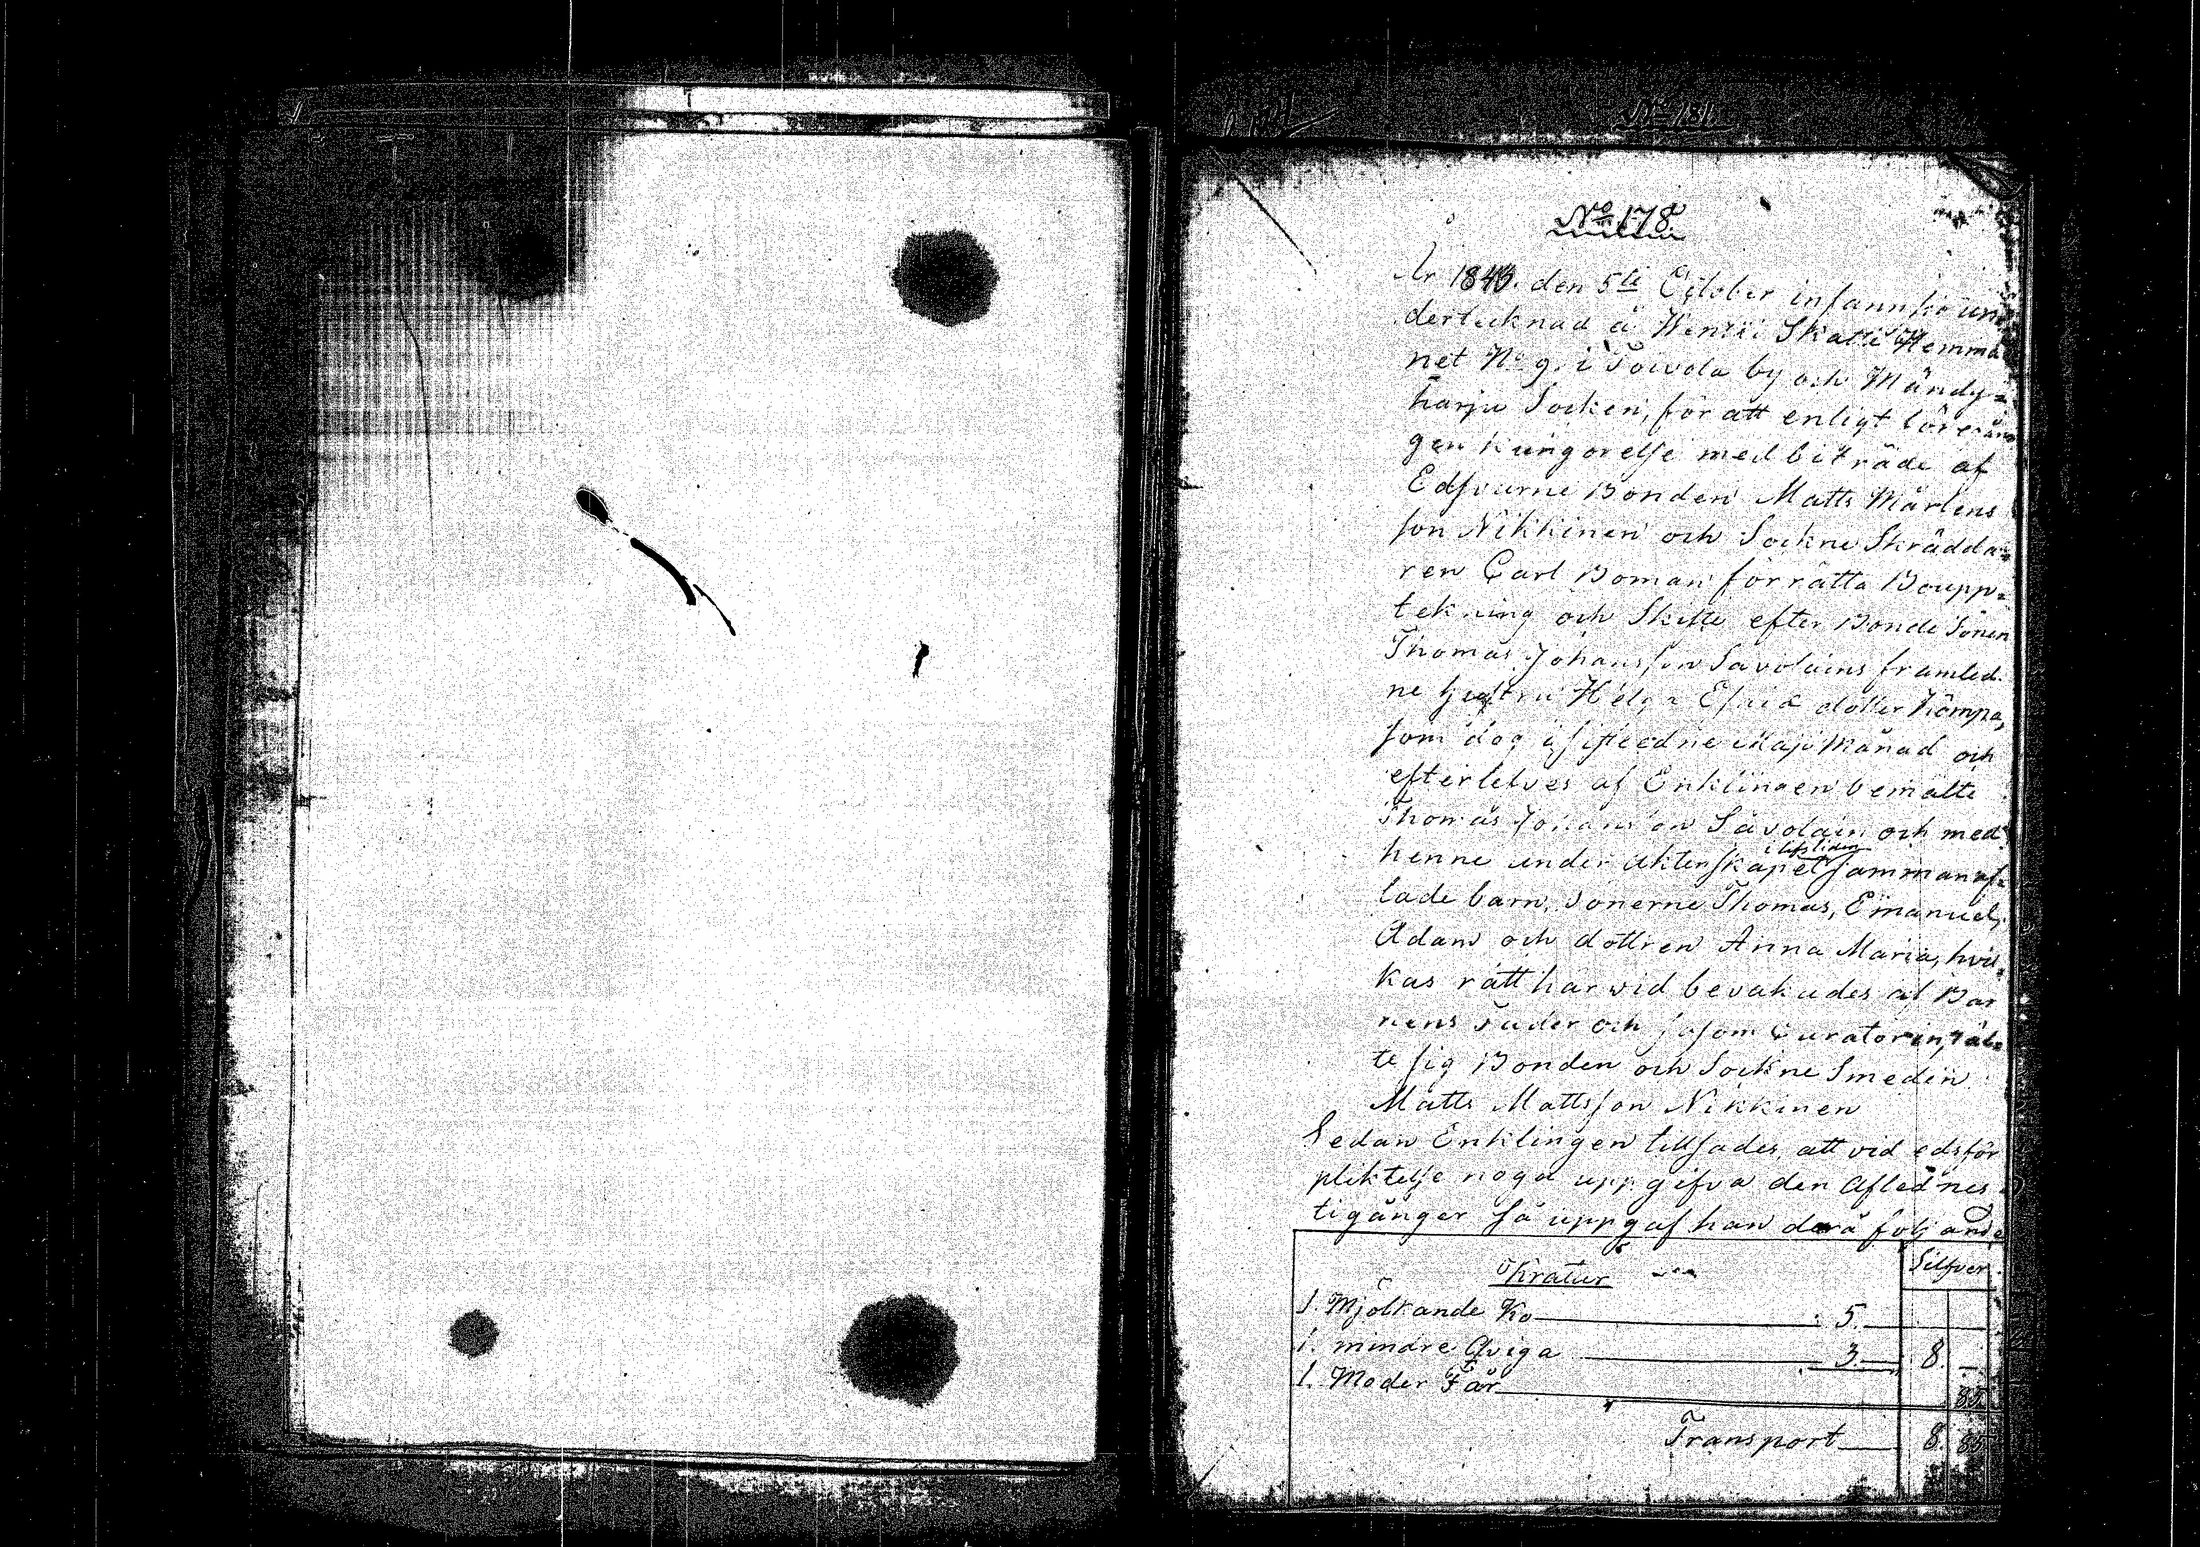 No 181.
No 178.
År 1843. den 5te October infann sig un
dertecknad å Wenthi Skatte Hemma
net No 9. i Toivola by och Mändy=
harju Socken, för att enligt
gen kungörelse med biträde af
Edsvurne Bonden Matts Mårtens
son Nikkinen och Sockne Skrädda=
ren Carl Boman förrätta Boupp=
tekning och Skifte efter Bonde Sonen
Thomas Johansson Savolains framled.
ne hustru Helga dotter Kämpa,
som dog i sistledne Maji Månad och
efterlefves af Enklingen bemälte
Thomas Johansson Savolain och med
henne under äktenskapet i lifstiden samman af=
lade barn, Sönerne Thomas, Emanuel,
Adam och dottren Anna Maria, hvil=
kas rätt härvid bevakades af Bar
nens Fader och såsom Curator instäl=
te sig Bonden och Sockne Smeden
Matts Mattsson Nikkinen
Sedan Enklingen tillsades, att vid edsför
pliktelse noga uppgifva den Aflednes
tigånger så uppgaf han derå följande
Silfver
Kratur
1. Mjölkande Ko 5.
1. mindre Qviga 3. 8. —
1. Moder Får 85.
Transport 8. 85